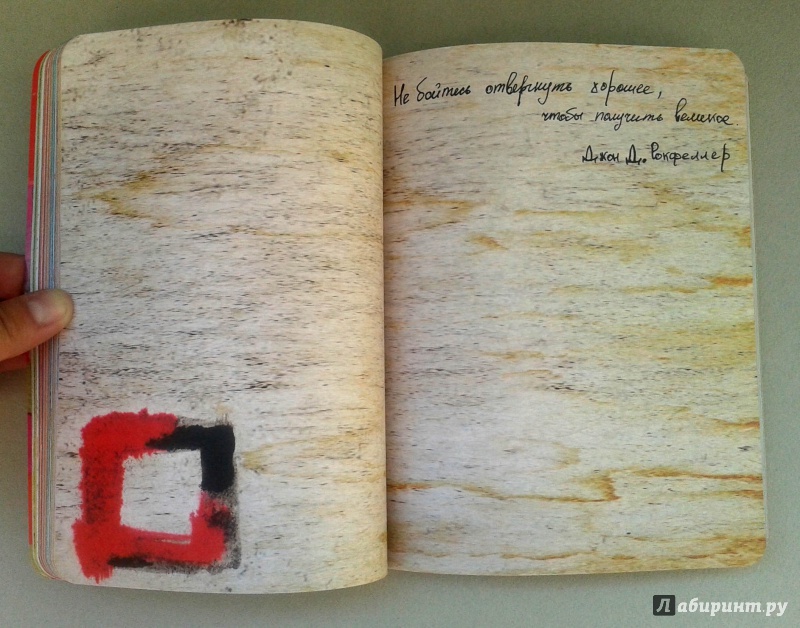 Не бойтесь отвергнуть хорошее,
чтобы получить великое.
Джон Д. Рокфеллер
Лабиринт.ру